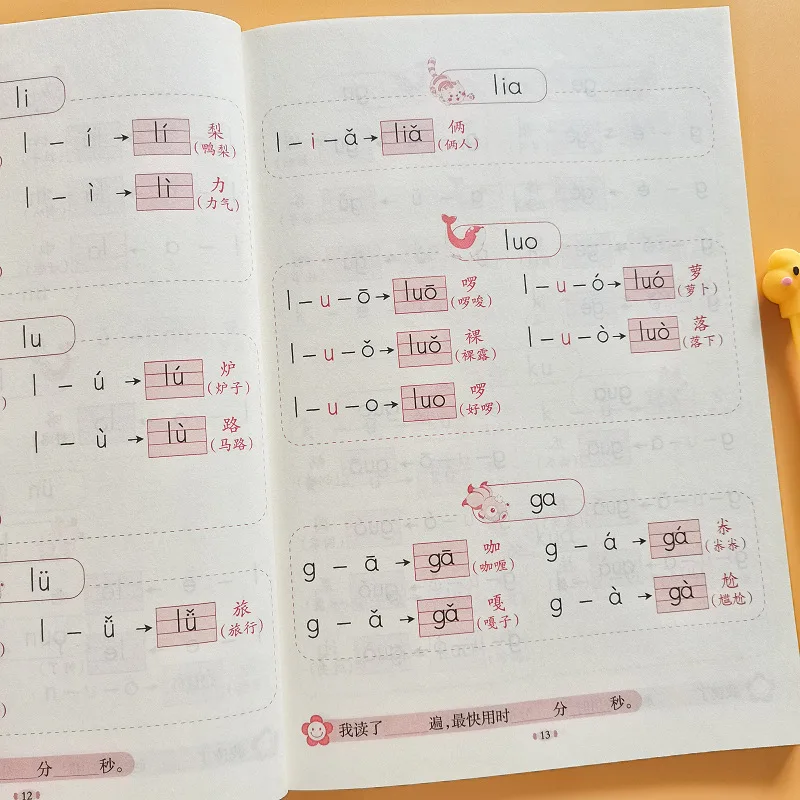 li
l – í → lí 梨
(鸭梨)
l – ì → lì 力
(力气)
lu
l – ú → lú 炉
(炉子)
l – ù → lù 路
(马路)
lü
l – ǚ → lǚ 旅
(旅行)
分 秒。
12
lia
l – i – ǎ → liǎ 俩
(俩人)
luo
l – u – ō → luō 啰
(啰唆)
l – u – ó → luó 萝
(萝卜)
l – u – ǒ → luǒ 裸
(裸露)
l – u – ò → luò 落
(落下)
l – u – o → luo 啰
(好啰)
ga
g – ā → gā 咖
(咖喱)
g – á → gá 尜
(尜尜)
g – ǎ → gǎ 嘎
(嘎子)
g – à → gà 尬
(尴尬)
我读了 遍,最快用时 分 秒。
13